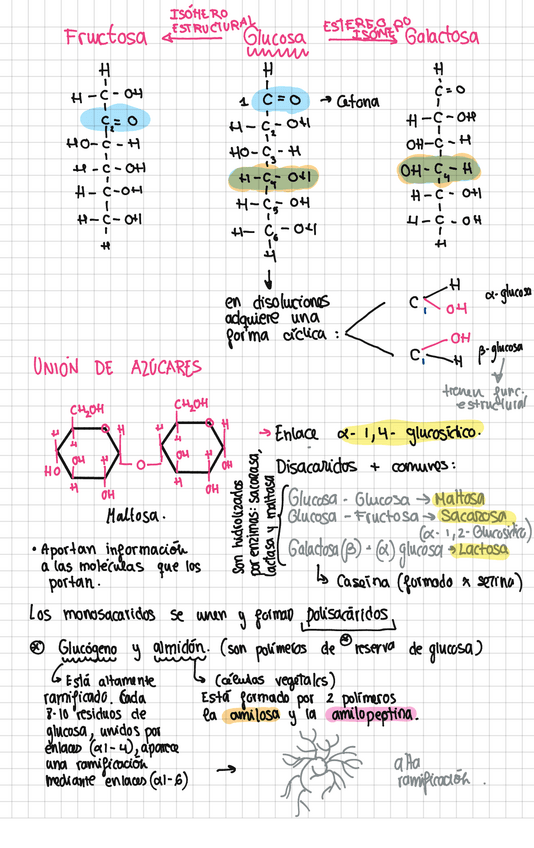 ISÓMERO ESTRUCTURAL
ESTEREO ISÓMERO
Fructosa Glucosa Galactosa
H
H - C - OH
C2 = O
HO - C - H
H - C - OH
H - C - OH
H - C - OH
H
H
1 C = O → Cetona
H - C2 - OH
HO - C3 - H
H - C4 - OH
H - C5 - OH
H - C6 - OH
H
H
C = O
H - C - OH
OH - C - H
OH - C4 - H
H - C - OH
H - C - OH
H
en disoluciones
adquiere una
forma cíclica :
C1 H OH α-glucosa
C1 OH H β-glucosa
tienen func.
estructural
UNIÓN DE AZÚCARES
CH2OH CH2OH
H O H H O H
H OH H O OH H
HO H OH H OH OH
Maltosa.
→ Enlace α-1,4-glucosídico.
Disacaridos + comunes:
Son hidrolizados
por enzimas: sacarasa,
lactasa y maltasa
Glucosa - Glucosa → Maltosa
Glucosa - Fructosa → Sacarosa
(α-1,2-Glucosídico)
Galactosa (β) + (α) glucosa → Lactosa
↳ Caseína (formado x serina)
• Aportan información
a las moléculas que los
portan.
Los monosacaridos se unen y forman polisacáridos
Glucógeno y almidón. (son polímeros de reserva de glucosa)
↳ Está altamente
ramificado. Cada
8-10 residuos de
glucosa, unidos por
enlaces (α1-4), aparece
una ramificación
mediante enlaces (α1-6)
↳ (células vegetales)
Está formado por 2 polímeros
la amilosa y la amilopeptina.
→
alta
ramificación.